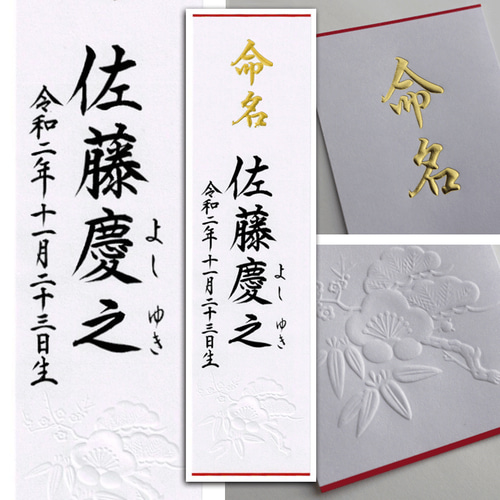 佐藤慶之
よしゆき
令和二年十一月二十三日生
命名
佐藤慶之
よしゆき
令和二年十一月二十三日生
命名